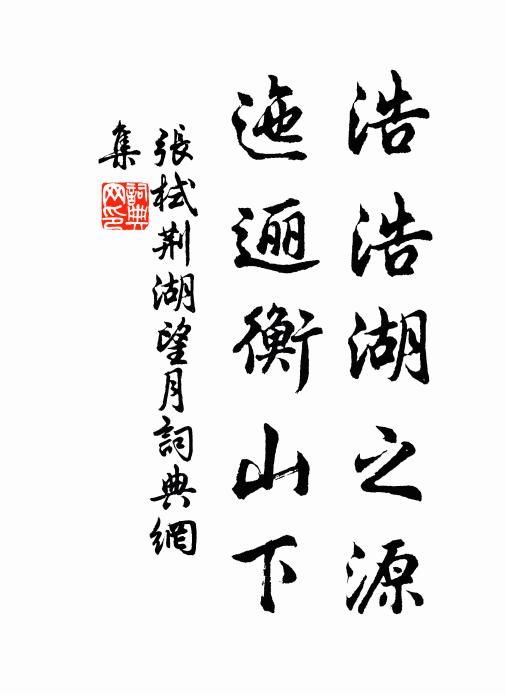 浩浩湖之源
迤逦衡山下
張栻荆湖望月詞典網
集
詞典
网印